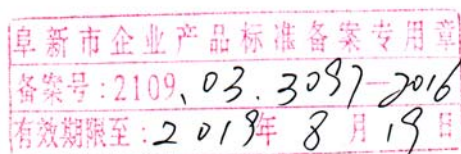 阜新市企业产品标准备案专用章
备案号:2109.03.3097-2016
有效期限至:2019年8月19日